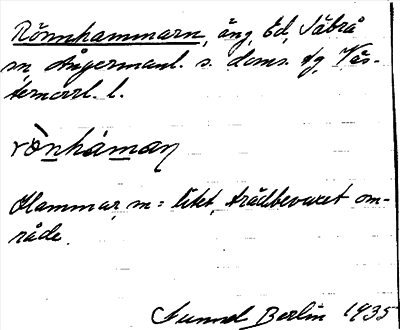 Rönnhammarn, äng, Ed, Säbrå
sn, Ångermanl. s. doms. dg, Väs-
ternorrl. l.
rònháman
Hammar, m = litet, trädbevuxet om-
råde.
Gunnel Berlin 1935